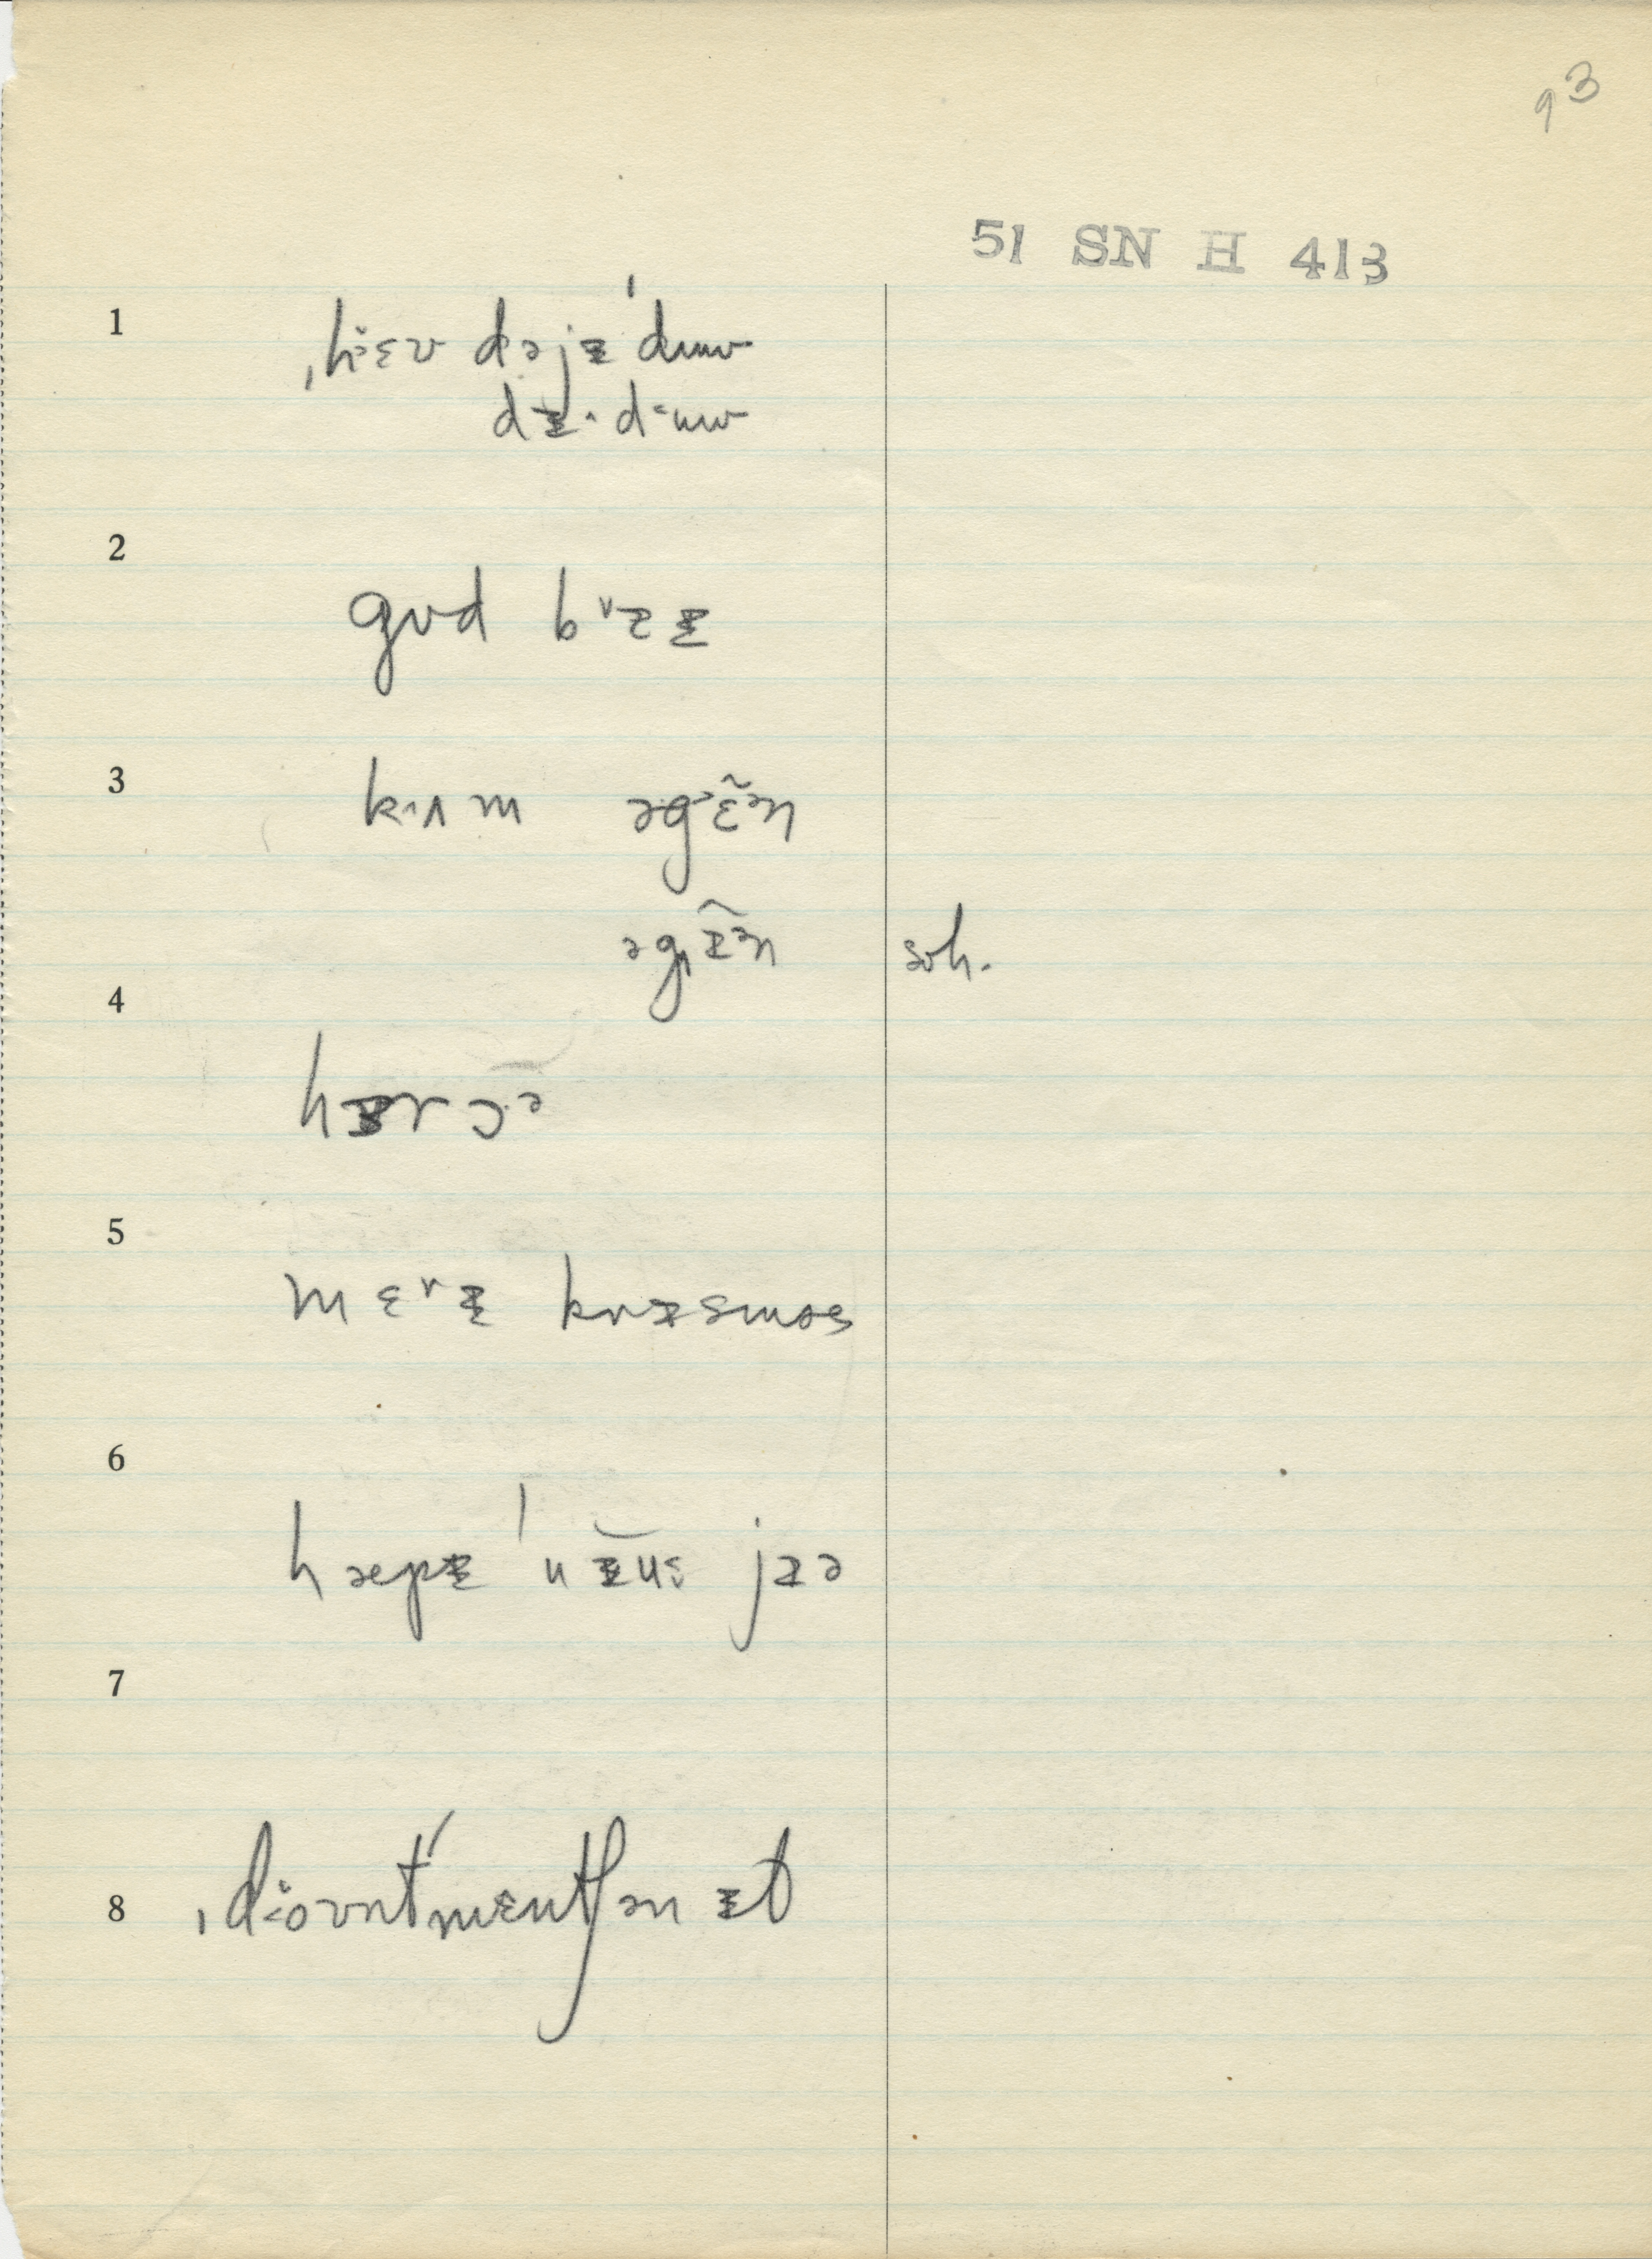 93
51 SN H 413
1 ˌhɛʊ dəjɪˈduʊ
dɪ· duʊ
2 gʊd bʌɪ
3 kʌm əgɛ̃ən
əgɪ̃ən svh.
4 hɪrɔə
5 mɛrɪ krɪsməs
6 hæpɪ ˈnɪu jɪə
7
8 ˌdoʊntˈmɛntʃən ɪt